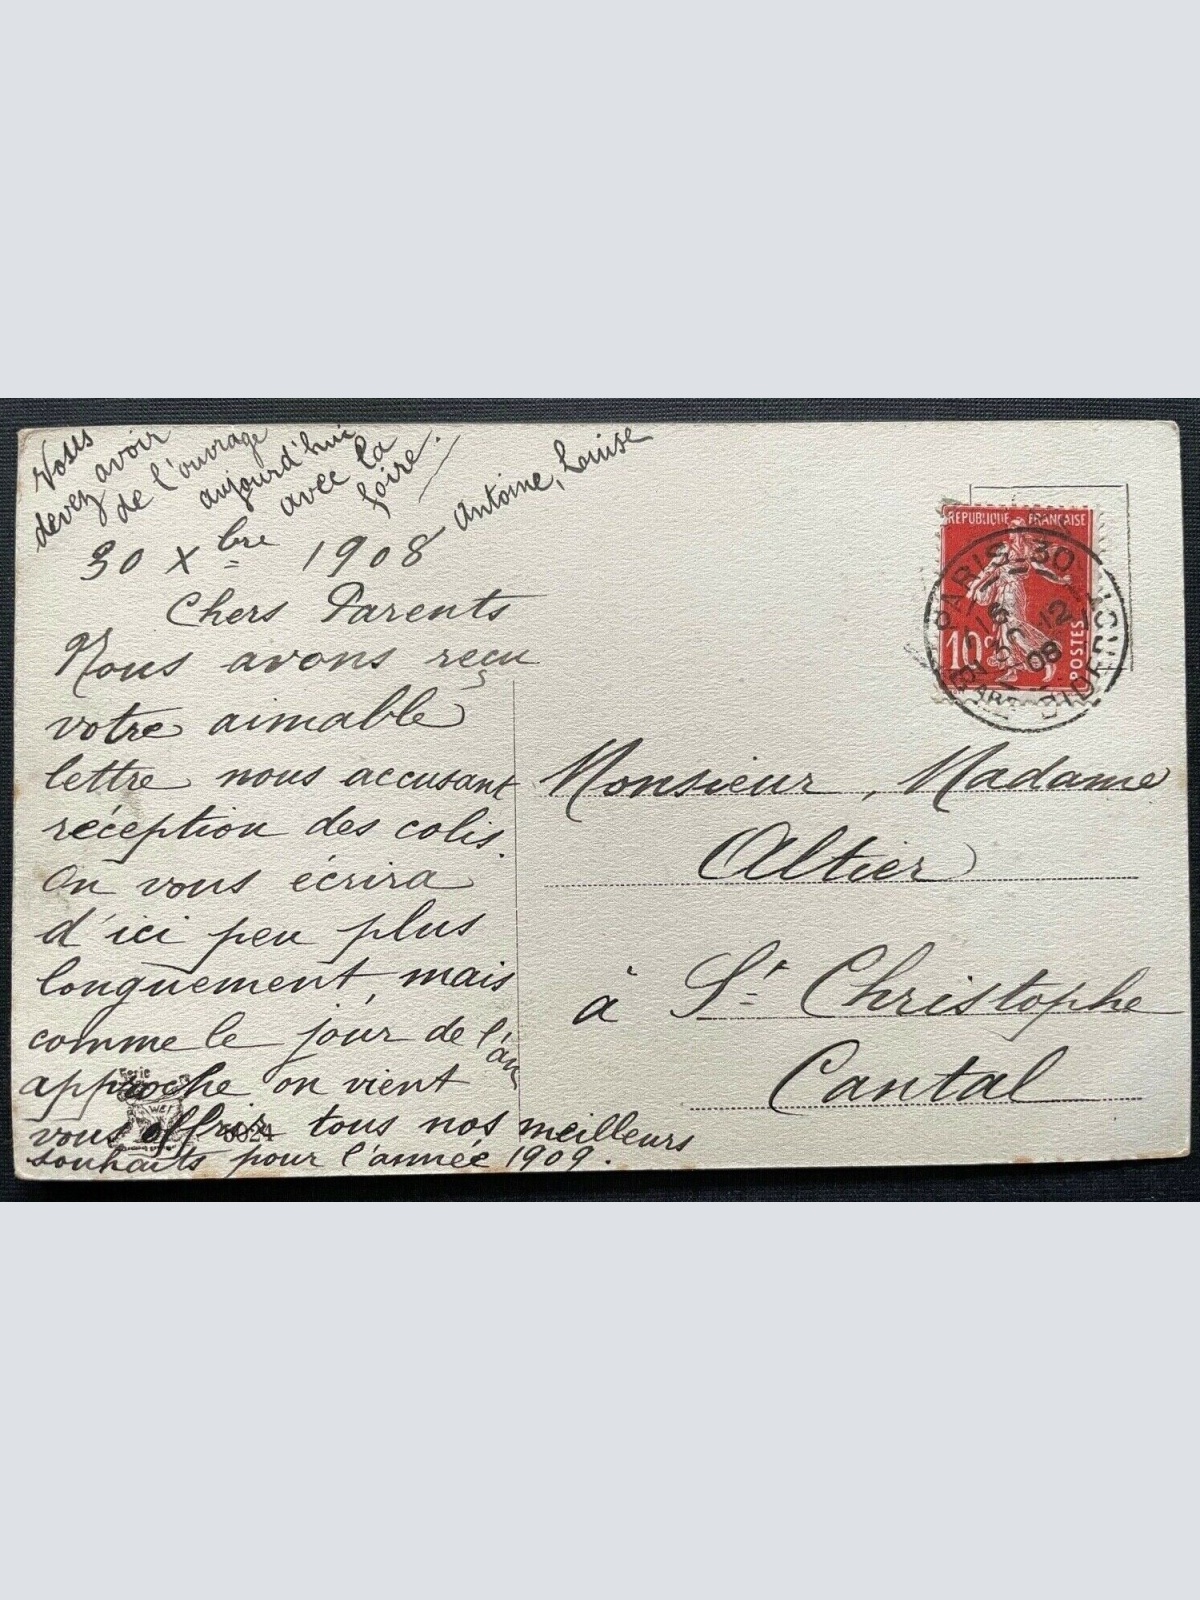 Vous
devez avoir
de l'ouvrage
aujourd'hui
avec la
foire.
Antoine, Louise
30 Xbre 1908
Chers Parents
Nous avons reçu
votre aimable
lettre nous accusant
réception des colis.
On vous écrira
d'ici peu plus
longuement, mais
comme le jour de l'an
approche on vient
vous offrir tous nos meilleurs
souhaits pour l'année 1909.
Serie
5024
REPUBLIQUE FRANÇAISE
10c
POSTES
PARIS-30
12
08
Monsieur, Madame
Altier
à St Christophe
Cantal